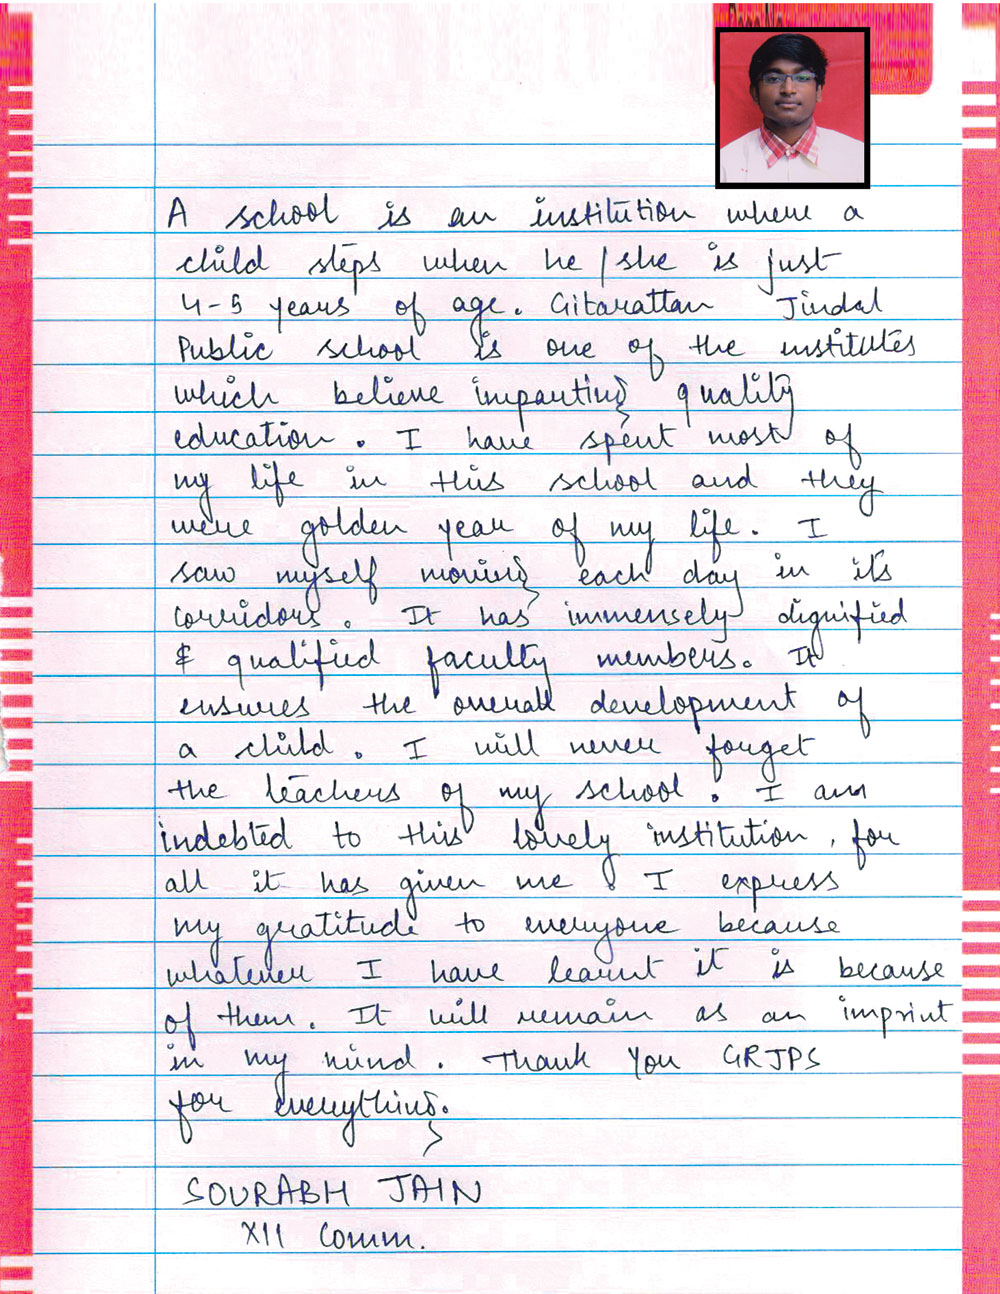 A school is an institution where a
child steps when he/she is just
4-5 years of age. Gitarattan Jindal
Public school is one of the institutes
which believe imparting quality
education. I have spent most of
my life in this school and they
were golden year of my life. I
saw myself moving each day in its
corridors. It has immensely dignified
& qualified faculty members. It
ensures the overall development of
a child. I will never forget
the teachers of my school. I am
indebted to this lovely institution, for
all it has given me. I express
my gratitude to everyone because
whatever I have learnt it is because
of them. It will remain as an imprint
in my mind. Thank you GRJPS
for everything.
SOURABH JAIN
XII Comm.